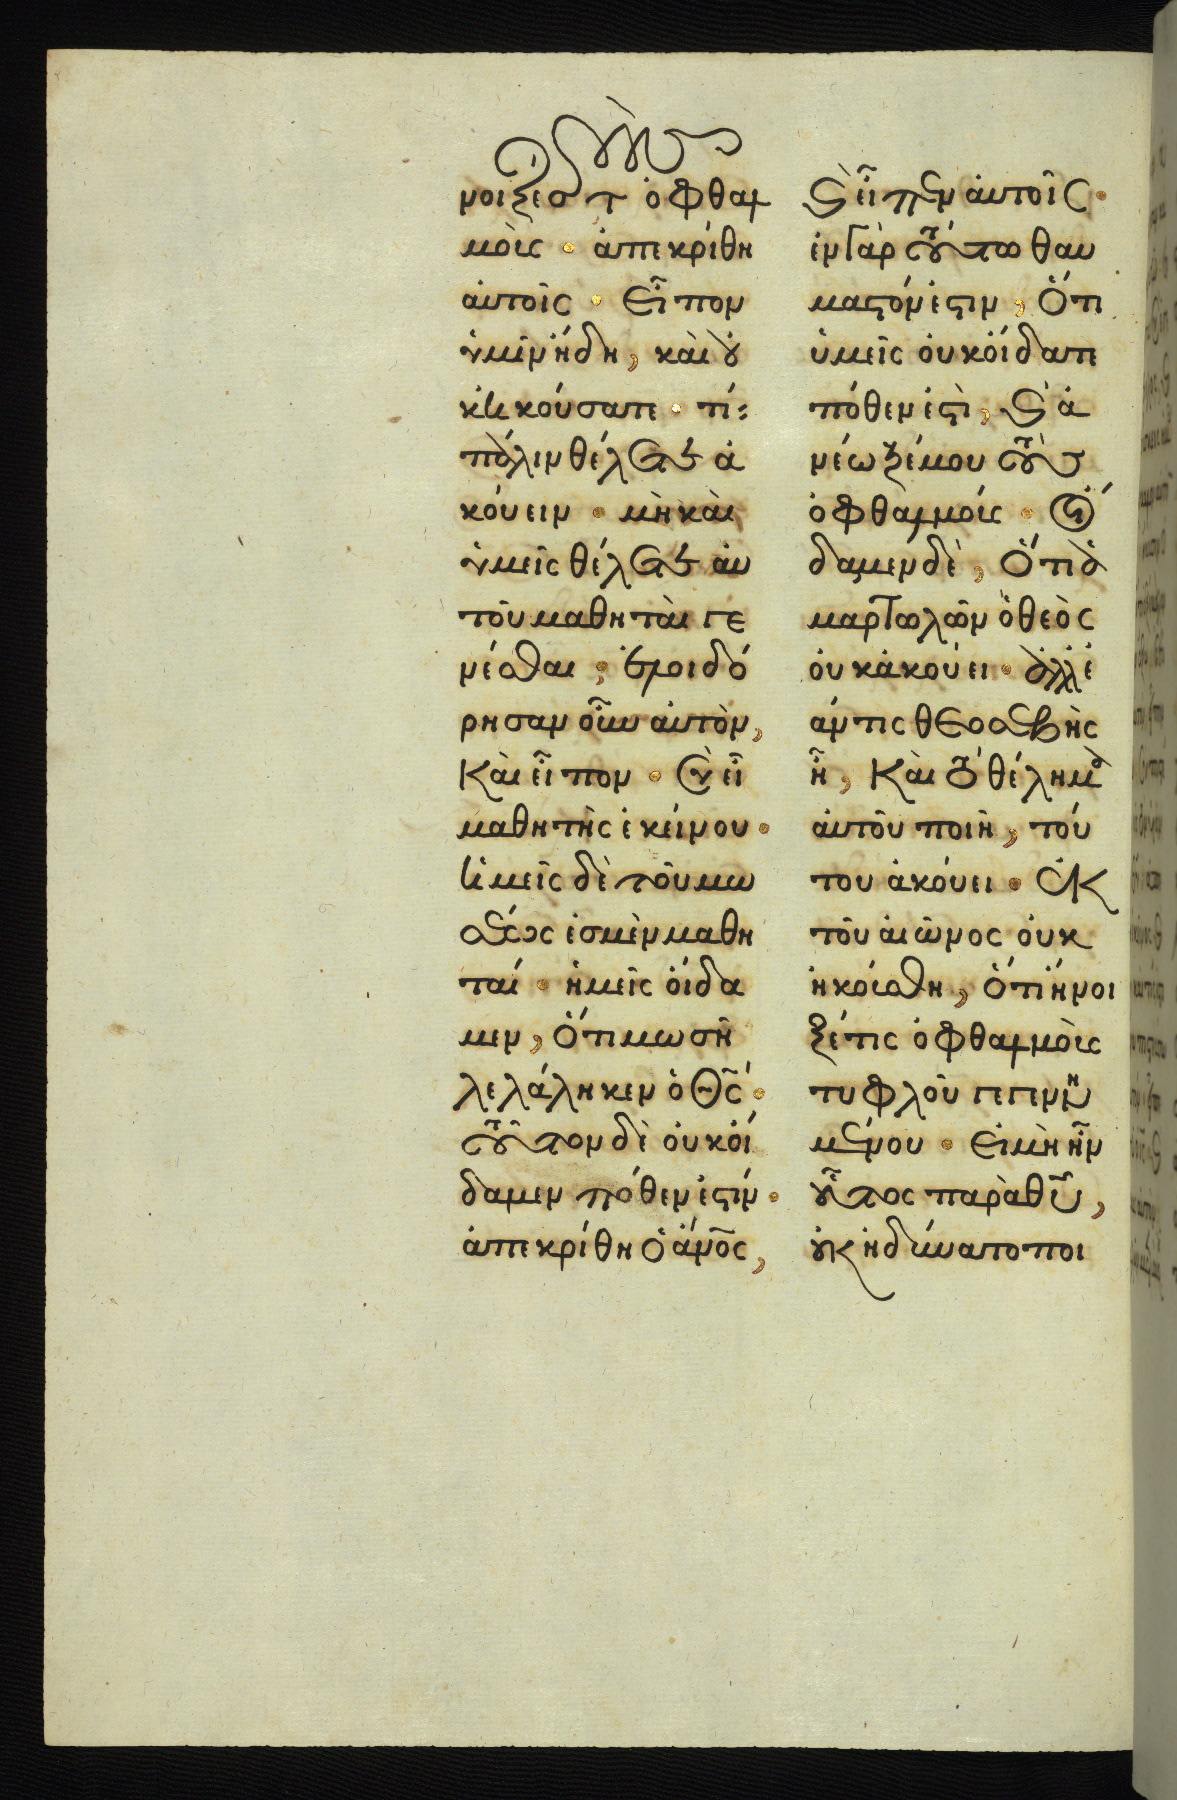 νοιξέ σου τ ὀφθαλ
μοὺς · ἀπεκρίθη
αὐτοῖς · Εἶπον
ὑμῖν ἤδη, καὶ οὐ
κ ἠκούσατε · τί
πάλιν θέλετε ἀ
κούειν · μὴ καὶ
ὑμεῖς θέλετε αὐ
τοῦ μαθηταὶ γε
νέσθαι; ἐλοιδό
ρησαν οὖν αὐτὸν,
Καὶ εἶπον · Σὺ εἶ
μαθητὴς ἐκείνου ·
ἡμεῖς δὲ τοῦ μω
σέως ἐσμὲν μαθη
ταί · ἡμεῖς οἴδα
μεν, Ὅτι μωσῆ
λελάληκεν ὁ Θς ·
τοῦτον δὲ οὐκ οἴ
δαμεν πόθεν ἐστίν ·
ἀπεκρίθη ὁ ἄνος,
καὶ εἶπεν αὐτοῖς ·
ἐν γὰρ τούτω θαυ
μαστόν ἐστιν, Ὅτι
ὑμεῖς οὐκ οἴδατε
πόθεν ἐστὶ, καὶ ἀ
νέωξέ μου τοὺς
ὀφθαλμούς · Οἴ
δαμεν δὲ, Ὅτι ἁ
μαρτωλῶν ὁ θεὸς
οὐκ ἀκούει · ἀλλ' ἐ
άν τις θεοσεβὴς
ἦ, Καὶ τὸ θέλημα
αὐτοῦ ποιῆ, τού
του ἀκούει · ἐκ
τοῦ αἰῶνος οὐκ
ἠκούσθη, Ὅτι ἤνοι
ξέ τις ὀφθαλμοὺς
τυφλοῦ γεγεννη
μένου · Εἰ μὴ ἦν
οὗτος παρὰ θυ,
οὐκ ἠδύνατο ποι